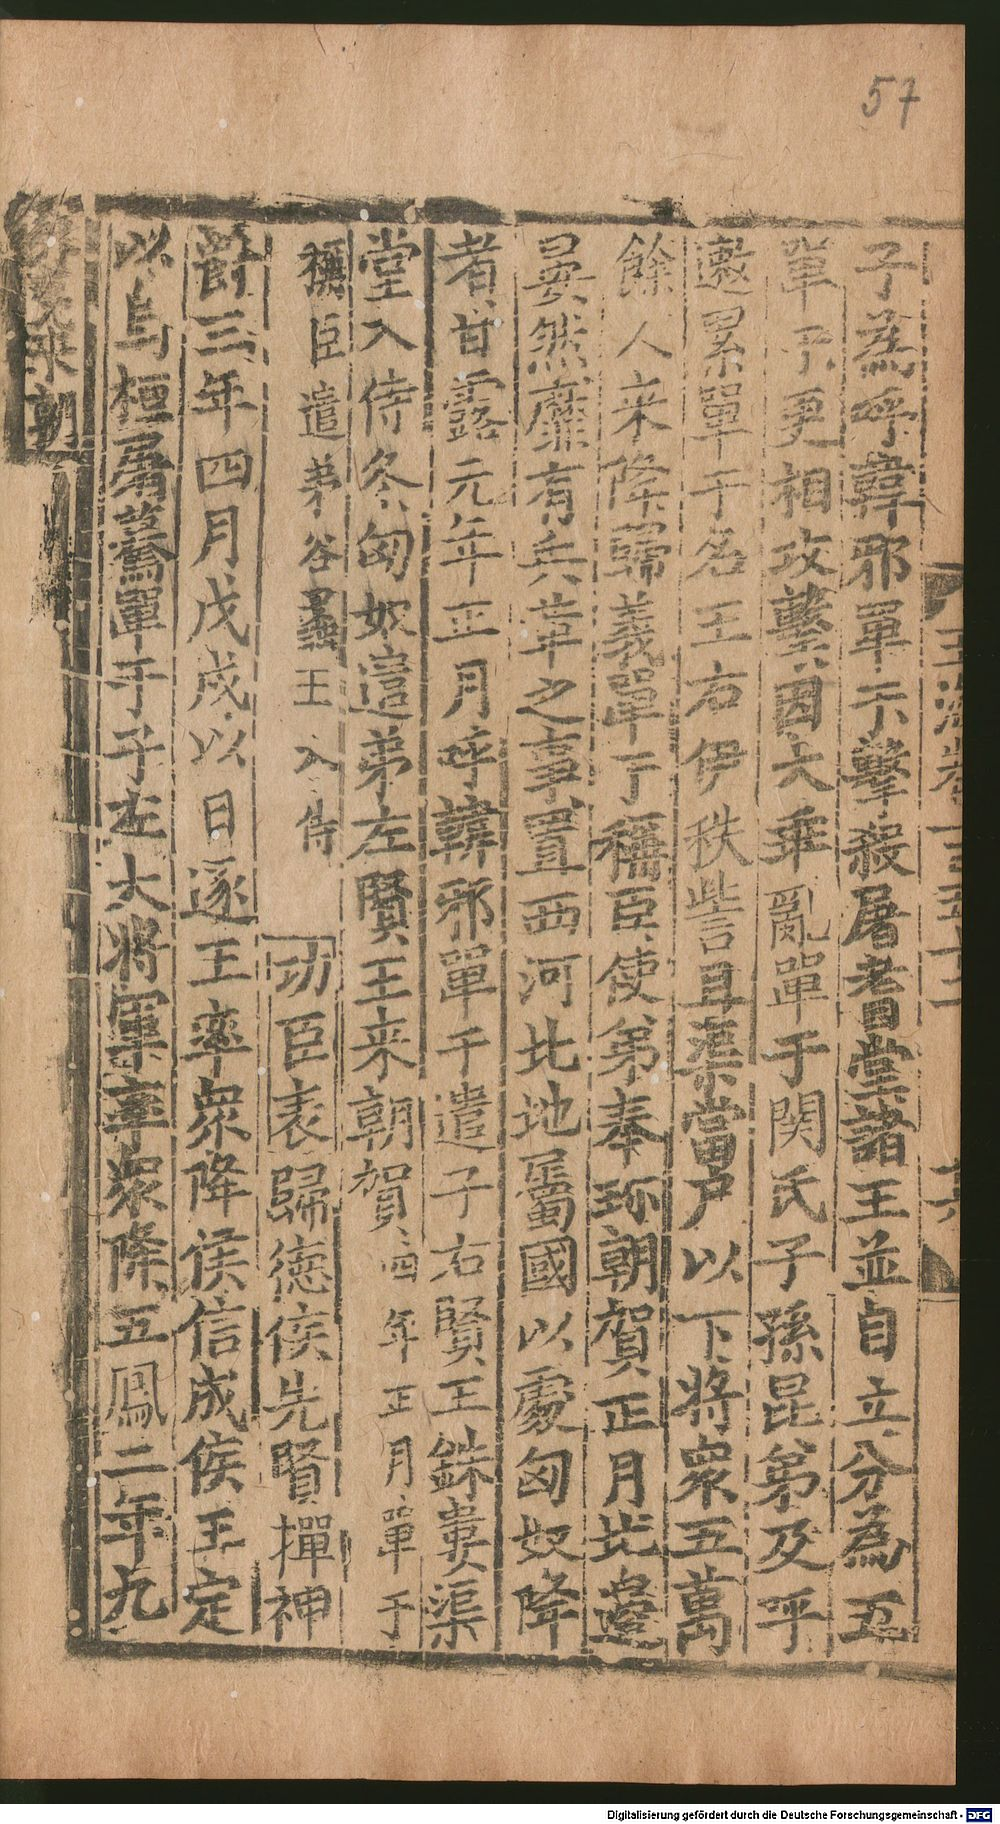 57
子為呼韓邪單于擊殺屠耆堂諸王並自立分為五
單于更相攻擊因大乖亂單于閼氏子孫昆弟及呼
遬累單于名王右伊秩訾且渠當戶以下將衆五萬
餘人来降歸義單于稱臣使弟奉珎朝賀正月北邊
晏然靡有兵革之事置西河北地屬國以處匈奴降
者甘露元年正月呼韓邪單于遣子右賢王銖婁渠
堂入侍冬匈奴遣弟左賢王来朝賀四年正月單于
稱臣遣弟谷蠡王入侍
功臣表歸德侯先賢撣神
爵三年四月戊戌以日逐王率衆降侯信成侯王定
以烏桓屠驀單于子左大將軍率衆降五鳳二年九
来朝
Digitalisierung gefördert durch die Deutsche Forschungsgemeinschaft - DFG